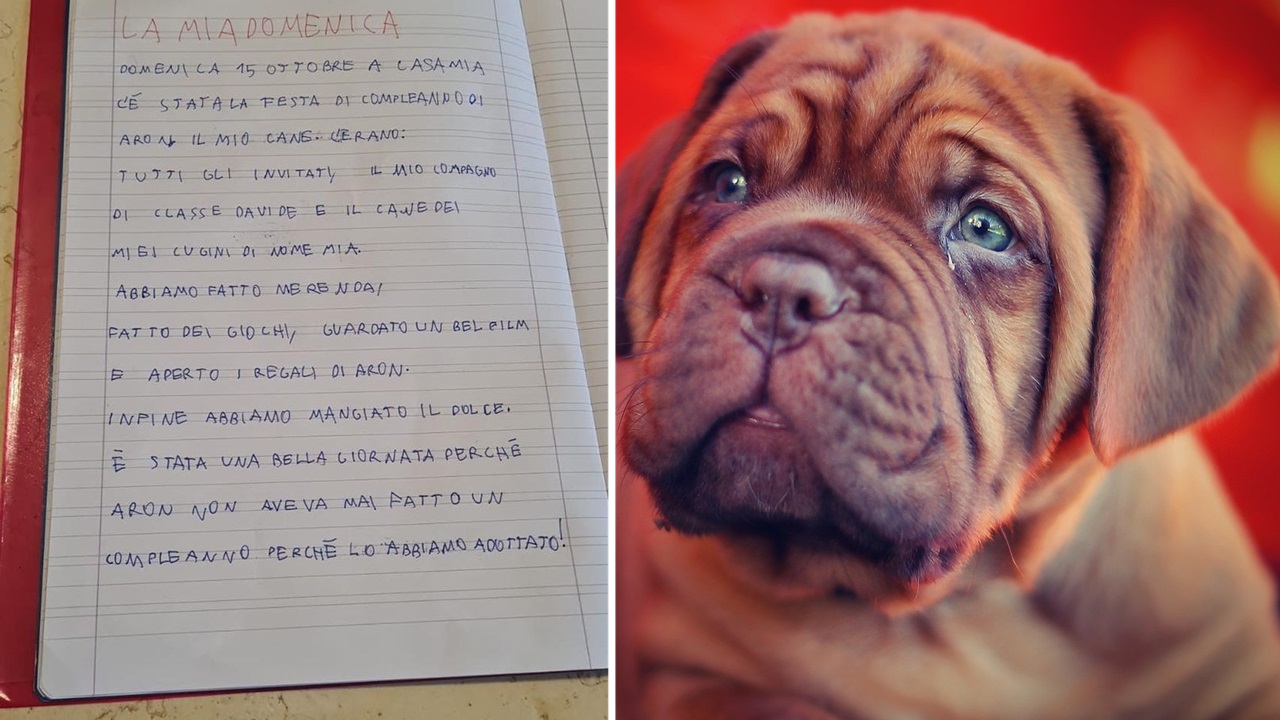 LA MIA DOMENICA
DOMENICA 15 OTTOBRE A CASA MIA
C'É STATA LA FESTA DI COMPLEANNO DI
ARON, IL MIO CANE. C'ERANO:
TUTTI GLI INVITATI, IL MIO COMPAGNO
DI CLASSE DAVIDE E IL CANE DEI
MIEI CUGINI DI NOME MIA.
ABBIAMO FATTO MERENDA,
FATTO DEI GIOCHI, GUARDATO UN BEL FILM
E APERTO I REGALI DI ARON.
INFINE ABBIAMO MANGIATO IL DOLCE.
É STATA UNA BELLA GIORNATA PERCHÉ
ARON NON AVEVA MAI FATTO UN
COMPLEANNO PERCHÉ LO ABBIAMO ADOTTATO!